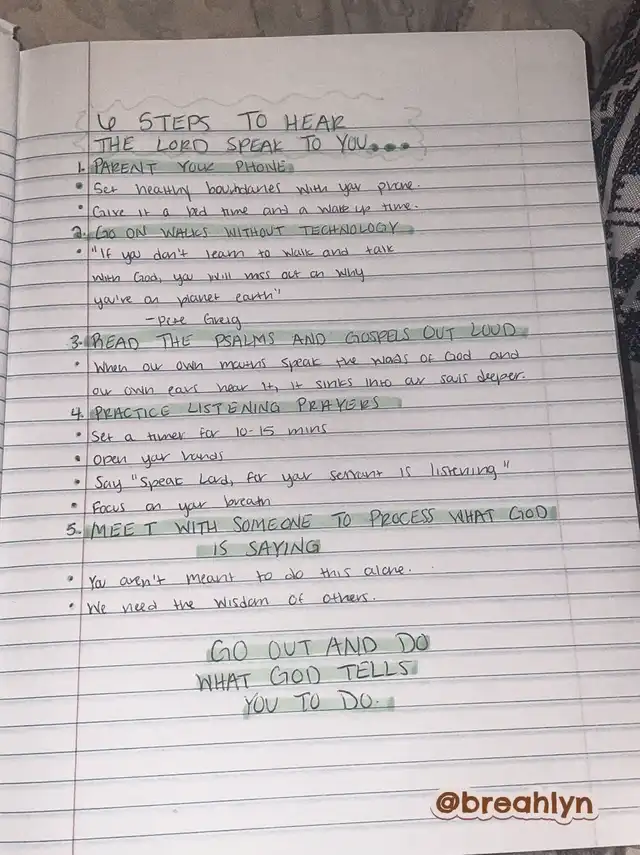 6 STEPS TO HEAR
THE LORD SPEAK TO YOU...
1. PARENT YOUR PHONE
• Set healthy boundaries with your phone.
• Give it a bed time and a wake up time.
2. GO ON WALKS WITHOUT TECHNOLOGY
• "If you don't learn to walk and talk
with God, you will miss out on why
you're on planet earth"
- Pete Greig
3. READ THE PSALMS AND GOSPELS OUT LOUD
• When our own mouths speak the words of God and
our own ears hear it, it sinks into our souls deeper.
4. PRACTICE LISTENING PRAYERS
• Set a timer for 10-15 mins
• Open your hands
• Say "Speak Lord, for your servant is listening"
• Focus on your breath
5. MEET WITH SOMEONE TO PROCESS WHAT GOD
IS SAYING
• You aren't meant to do this alone.
• We need the wisdom of others.
GO OUT AND DO
WHAT GOD TELLS
YOU TO DO.
@breahlyn